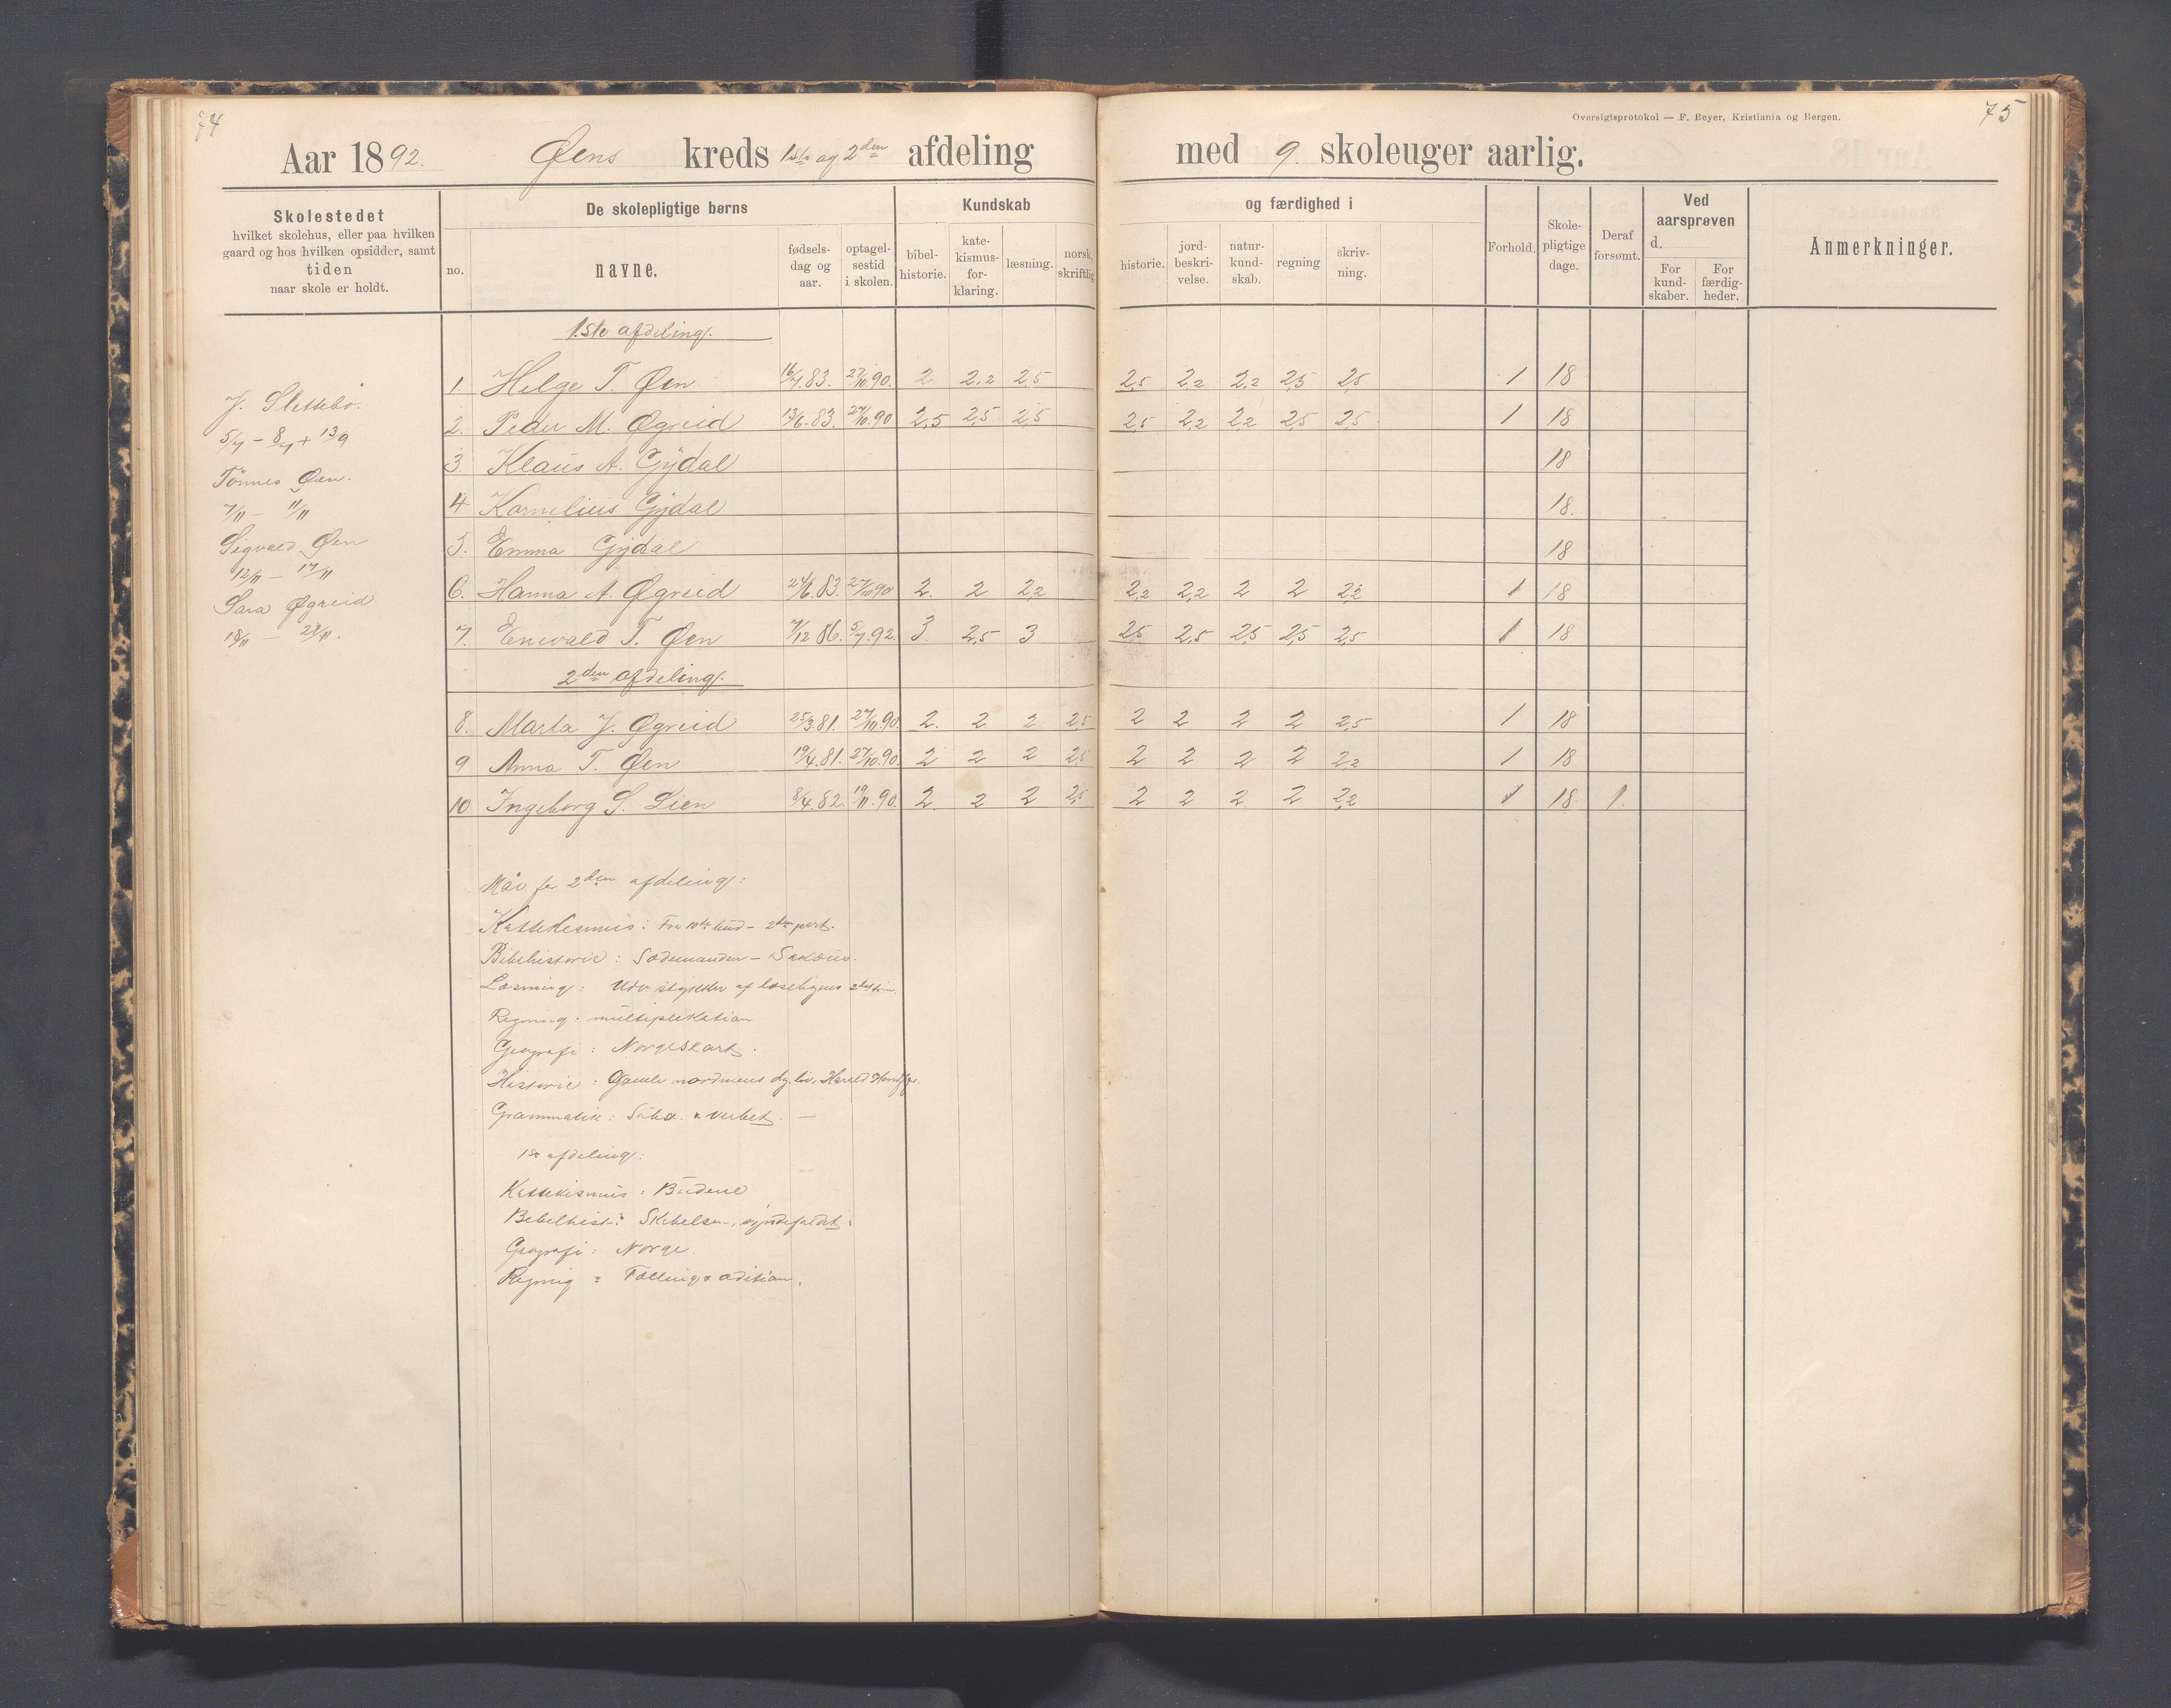 74
75
Oversigtsprotokol — F. Beyer, Kristiania og Bergen.
Aar 1892. Øens kreds 1ste og 2den afdeling med 9. skoleuger aarlig.
Skolestedet
hvilket skolehus, eller paa hvilken
gaard og hos hvilken opsidder, samt
tiden
naar skole er holdt.
De skolepligtige børns
no.
navne.
fødsels-
dag og
aar.
optagel-
sestid
i skolen.
Kundskab
og færdighed i
bibel-
historie.
kate-
kismus-
for-
klaring.
læsning.
norsk,
skriftlig
historie.
jord-
beskri-
velse.
natur-
kund-
skab.
regning
skriv-
ning.
Forhold.
Skole-
pligtige
dage.
Deraf
forsømt.
Ved
aarsprøven
d.
For
kund-
skaber.
For
færdig-
heder.
Anmerkninger.
J. Slettebø.
5/7 - 8/7 + 13/9
Tönnes Øen.
7/11 - 11/11
Sigvald Øen
12/11 - 17/11
Sara Øgreid
18/11 - 21/11.
1.ste afdeling.
1. Helge T. Øen 16/7.83. 27/10 90. 2 2.2 2,5 2,5 2,2 2,2 2,5 2,5 1 18
2. Peder M. Øgreid 13/6.83. 27/10.90 2,5 2,5 2,5 2,5 2,2 2,2 2,5 2,5 1 18
3. Klaus A. Gydal 18
4 Kornelius Gydal 18.
5. Emma Gydal 18
6. Hanna A. Øgreid 24/6.83. 27/10 90 2. 2 2,2 2,2 2,2 2 2 2,2 1 18
7. Enevald T. Øen 7/12 86. 5/7.92. 3. 2,5 3 2,5 2,5 2,5 2,5 2,5 1 18
2den afdeling.
8. Marta J. Øgreid 25/3.81. 27/10.90. 2. 2 2 2,5 2 2 2 2 2,5 1 18
9 Anna T. Øen 19/4.81. 27/10.90. 2 2 2 2,5 2 2 2 2 2,2 1 18
10 Ingeborg S. Lien 8/4.82. 19/11.90. 2. 2 2 2,5 2 2 2. 2 2,2 1 18 1.
Mål for 2den afdeling:
Kattekesmus: Fra 10de bud - 2den part.
Bibelhistorie: Sædemanden -
Læsning: Udv. stykker af læsebogens
Regning: multiplikation
Geografi: Norgeskart.
Historie: Gamle nordmens dgl. liv, Harald Hårdfg.
Grammatik: Subst. & verbet. —
1ste afdeling:
Kattekismus: Budene
Bebelhist: Skabelsen, syndefaldet.
Geografi: Norge
Regnig: Tælling & adition.